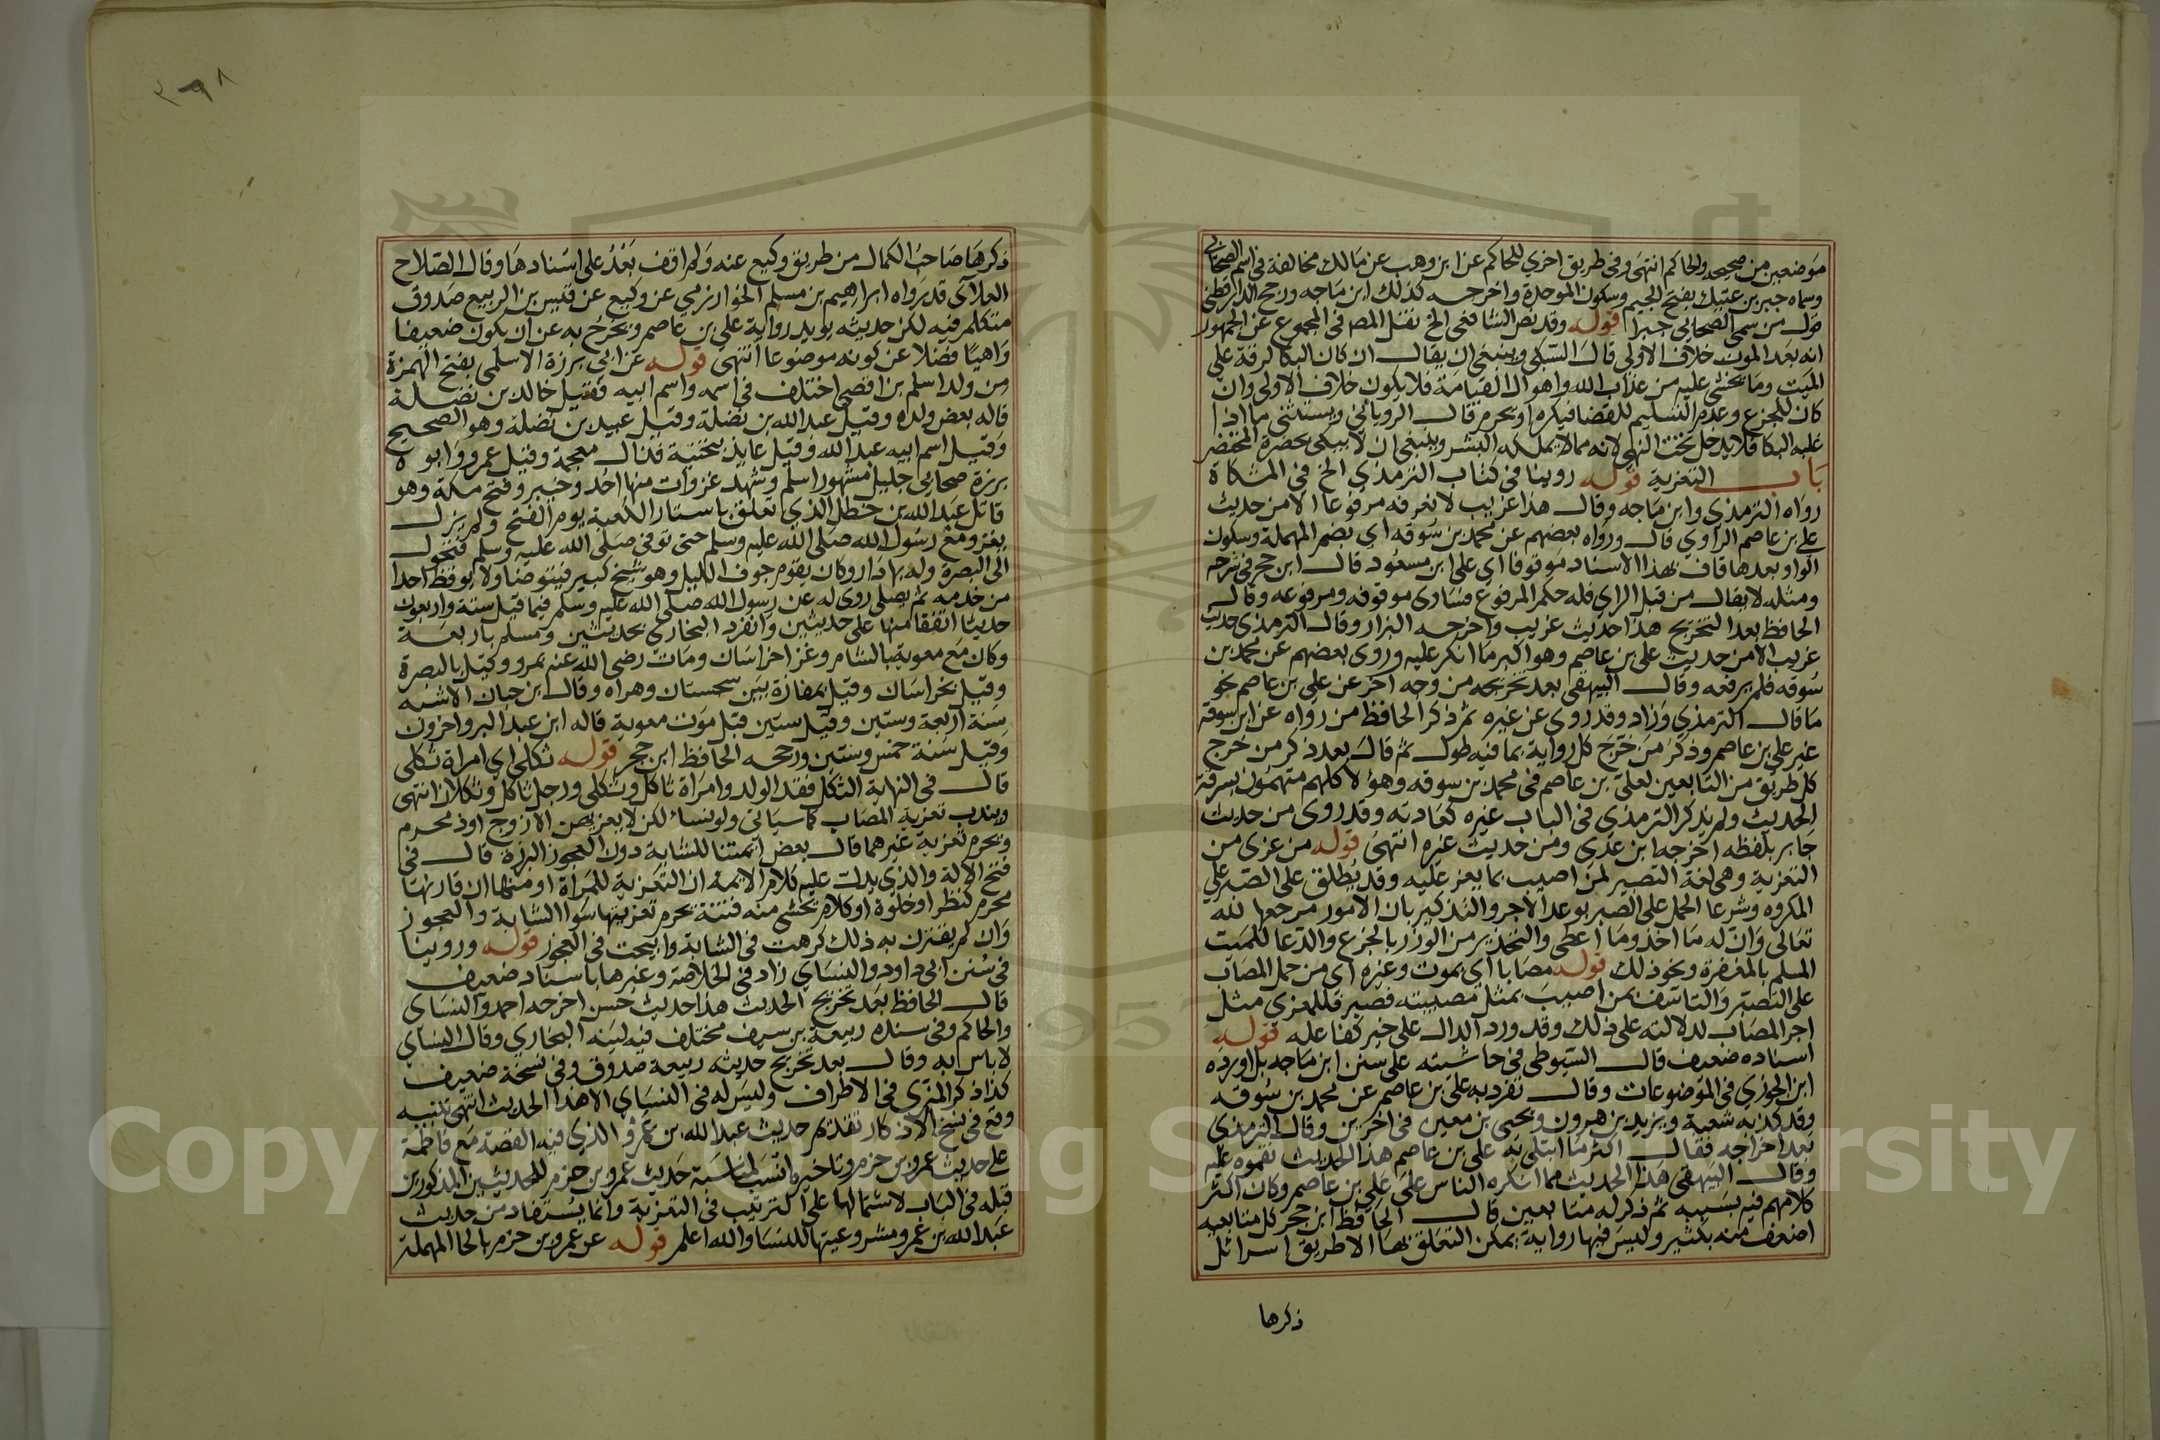 موضعين من صحيحه والحاكم انتهى وفي طريق اخرى للحاكم عن ابن وهب عن مالك مخالفة في اسم الصحابي
وسماه جبر بن عتيك بفتح الجيم وسكون الموحدة واخرجه كذلك ابن ماجه ورجح الدارقطني
قول من سمى الصحابي جبرا قوله وقد نص الشافعي الخ نقل المص في المجموع عن الجمهور
انه بعد الموت خلاف الاولى قال السبكي وينبغي ان يقال ان كان البكا لرقة على
الميت وما يخشى عليه من عذاب الله واهوال القيامة فلا يكون خلاف الاولى وان
كان للجزع وعدم التسليم للقضا فيكره او يحرم قال الروياني ويستثنى ما اذا
غلبه البكا فلا يدخل تحت النهي لانه مما لا يملكه البشر وينبغي ان لا يبكي بحضرة المحتضر
باب التعزية قوله روينا في كتاب الترمذي الخ في المشكاة
رواه الترمذي وابن ماجه وقال هذا غريب لا نعرفه مرفوعا الا من حديث
علي بن عاصم الراوي قال ورواه بعضهم عن محمد بن سوقه اي بضم المهملة وسكون
الواو بعدها قاف بهذا الاسناد موقوفا اي على ابن مسعود قال ابن حجر في شرحه
ومثله لا يقال من قبل الراي فله حكم المرفوع فتساوى موقوفه ومرفوعه وقال
الحافظ بعد التخريج هذا حديث غريب واخرجه البزار وقال الترمذي حديث
غريب الا من حديث علي بن عاصم وهو اكبر ما انكر عليه وروى بعضهم عن محمد بن
سوقه فلم يرفعه وقال البيهقي بعد تخريجه من وجه اخر عن علي بن عاصم نحو
ما قال الترمذي وزاد وقد روي عن غيره ثم ذكر الحافظ من رواه عن ابن سوقة
غير علي بن عاصم وذكر من خرج كل رواية بما فيه طول ثم قال بعد ذكر من خرج
كل طريق من التابعين لعلي بن عاصم في محمد بن سوقه وهؤلا كلهم متهمون بسرقة
الحديث ولم يذكر الترمذي في الباب غيره كعادته وقد روى من حديث
جابر بلفظه اخرجه ابن عدي ومن حديث غيره انتهى قوله من عزى من
التعزية وهي لغة التصبير لمن اصيب بما يعز عليه وقد يطلق على الصبر على
المكروه وشرعا الحمل على الصبر بوعد الاجر والتذكير بان الامور مرجعها لله
تعالى وان له ما اخذ وما اعطى والتحذير من الوزر بالجزع والدعا للميت
المسلم بالمغفرة ونحو ذلك قوله مصابا اي بموت وغيره اي من حمل المصاب
على التصبر والتاسف بمن اصيب بمثل مصيبته فصبر فللمعزي مثل
اجر المصاب لدلالته على ذلك وقد ورد الدال على خير كفاعله قوله
اسناده ضعيف قال السيوطي في حاشيته على سنن ابن ماجه بل اورده
ابن الجوزي في الموضوعات وقال تفرد به علي بن عاصم عن محمد بن سوقه
وقد كذبه شعبة ويزيد بن هرون ويحيى بن معين في اخرين وقال الترمذي
بعد اخراجه فقال اكثر ما ابتلي به علي بن عاصم هذا الحديث نقموه عليه
وقال البيهقي هذا الحديث مما انكره الناس على علي بن عاصم وكان اكثر
كلامهم فيه بسببه ثم ذكر له متابعين قال الحافظ ابن حجر كل متابعيه
اضعف منه بكثير وليس فيها رواية يمكن التعلق بها الا طريق اسرائل
ذكرها
٣٩٨
ذكرها صاحب الكمال من طريق وكيع عنه ولم اقف بعد على اسنادها وقال الصلاح
العلائي قد رواه ابراهيم بن مسلم الخوارزمي عن وكيع عن قيس بن الربيع صدوق
متكلم فيه لكن حديثه يويد رواية علي بن عاصم ويخرج به عن ان يكون ضعيفا
واهيا فضلا عن كونه موضوعا انتهى قوله عن ابي برزة الاسلمي بفتح الهمزة
من ولد اسلم بن افصى اختلف في اسمه واسم ابيه فقيل خالد بن نضلة
قاله بعض ولده وقيل عبد الله بن نضلة وقيل عبيد بن نضلة وهو الصحيح
وقيل اسم ابيه عبد الله وقيل عايذ بتحتية فذال معجمة وقيل عمرو وابو
برزة صحابي جليل مشهور اسلم وشهد غزوات منها احد وخيبر وفتح مكة وهو
قاتل عبد الله بن خطل الذي تعلق باستار الكعبة يوم الفتح ولم يزل
يغزو مع رسول الله صلى الله عليه وسلم حتى توفي صلى الله عليه وسلم فتحول
الى البصرة وله بها دار وكان يقوم جوف الليل وهو شيخ كبير فيتوضا ولا يوقظ احدا
من خدمه ثم يصلي روي له عن رسول الله صلى الله عليه وسلم فيما قيل ستة واربعون
حديثا اتفقا منها على حديثين وانفرد البخاري بحديثين ومسلم باربعة
وكان مع معوية بالشام وغزا خراسان ومات رضي الله عنه بمرو وقيل بالبصرة
وقيل بخراسان وقيل بمفازة بين سجستان وهراه وقال ابن حبان الاشبه
سنة اربعة وستين وقيل ستين قبل موت معوية قاله ابن عبد البر واخرون
وقيل سنة خمس وستين ورجحه الحافظ ابن حجر قوله ثكلى اي امراة ثكلى
قال في النهاية الثكل فقد الولد وامراة ثاكل وثكلى ورجل ثاكل وثكلان انتهى
ويندب تعزية المصاب كما سياتي ولو نساء لكن لا يعزيهن الا زوج او ذو محرم
وتحرم تعزية غيرهما قال بعض ائمتنا للشابة دون العجوز البرزة قال في
فتح الاله والذي يدل عليه كلام الايمة ان التعزية للمراة او منها ان قارنها
محرم كنظر او خلوة او كلام تخشى منه فتنة يحرم تعزيتها سوا الشابة والعجوز
وان لم يقترن به ذلك كرهت في الشابة وابيحت في العجوز قوله وروينا
في سنن ابي داود والنساي زاد في الخلاصة وغيرها باسناد ضعيف
قال الحافظ بعد تخريج الحديث هذا حديث حسن اخرجه احمد والنساي
والحاكم وفي سنده ربيعة بن سيف مختلف فيه لينه البخاري وقال النساي
لا باس به وقال بعد تخريج حديثه ربيعة صدوق وفي نسخة ضعيف
كذا ذكر المزي في الاطراف وليس له في النساي الا هذا الحديث انتهى تنبيه
وقع في نسخ الاذكار تقديم حديث عبد الله بن عمرو الذي فيه القصة مع فاطمة
على حديث عمرو بن حزم وتاخيره انسب لمناسبة حديث عمرو بن حزم للحديثين المذكورين
قبله في الباب لاشتمالها على الترتيب في التعزية وانما يستفاد من حديث
عبد الله بن عمرو مشروعيتها للنسا والله اعلم قوله عن عمرو بن حزم بالحا المهملة